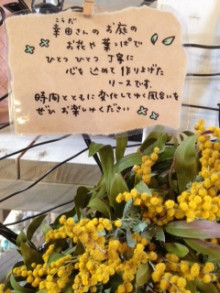 こうだ
幸田さんのお庭の
お花や葉っぱで
ひとつ ひとつ 丁寧に
心を込めて作り上げた
リースです。
時間とともに変化してゆく風合いを
ぜひ お楽しみください